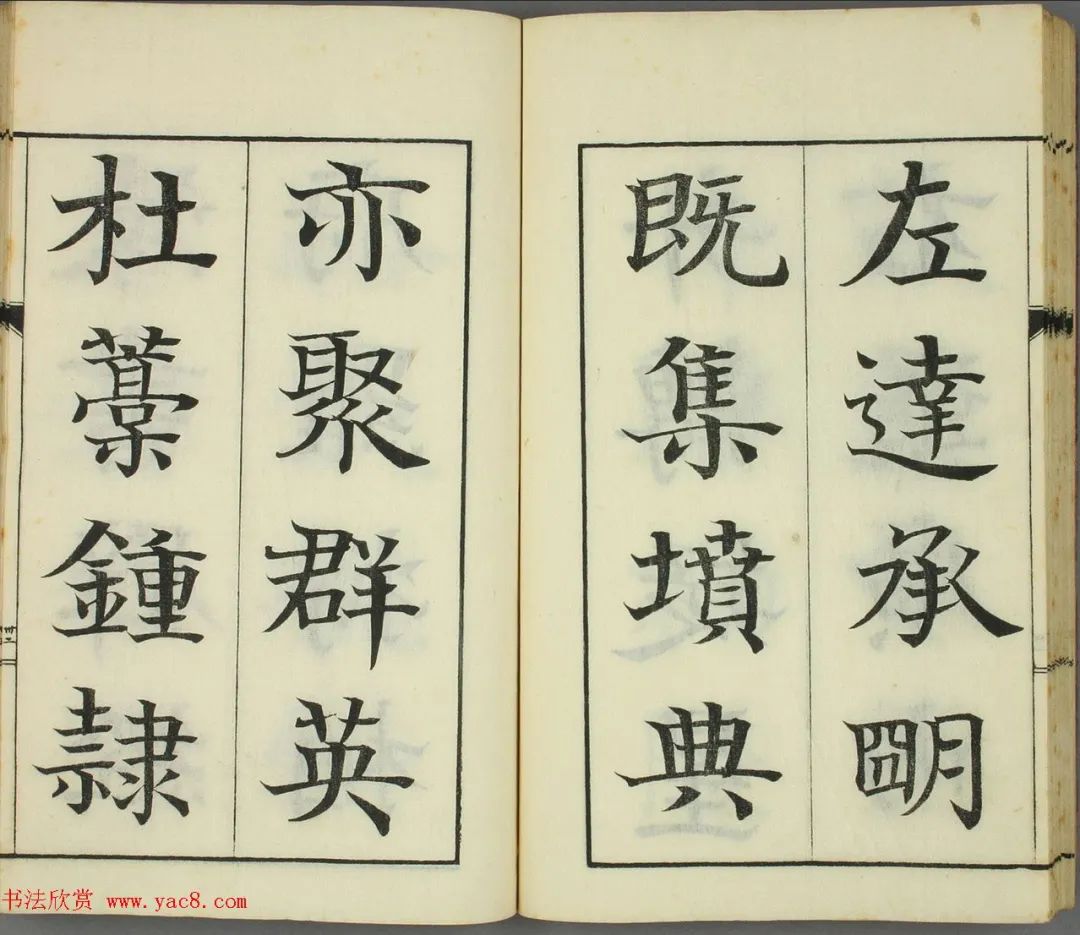 左達承明
既集墳典
亦聚群英
杜藁鍾隷
书法欣赏 www.yac8.com